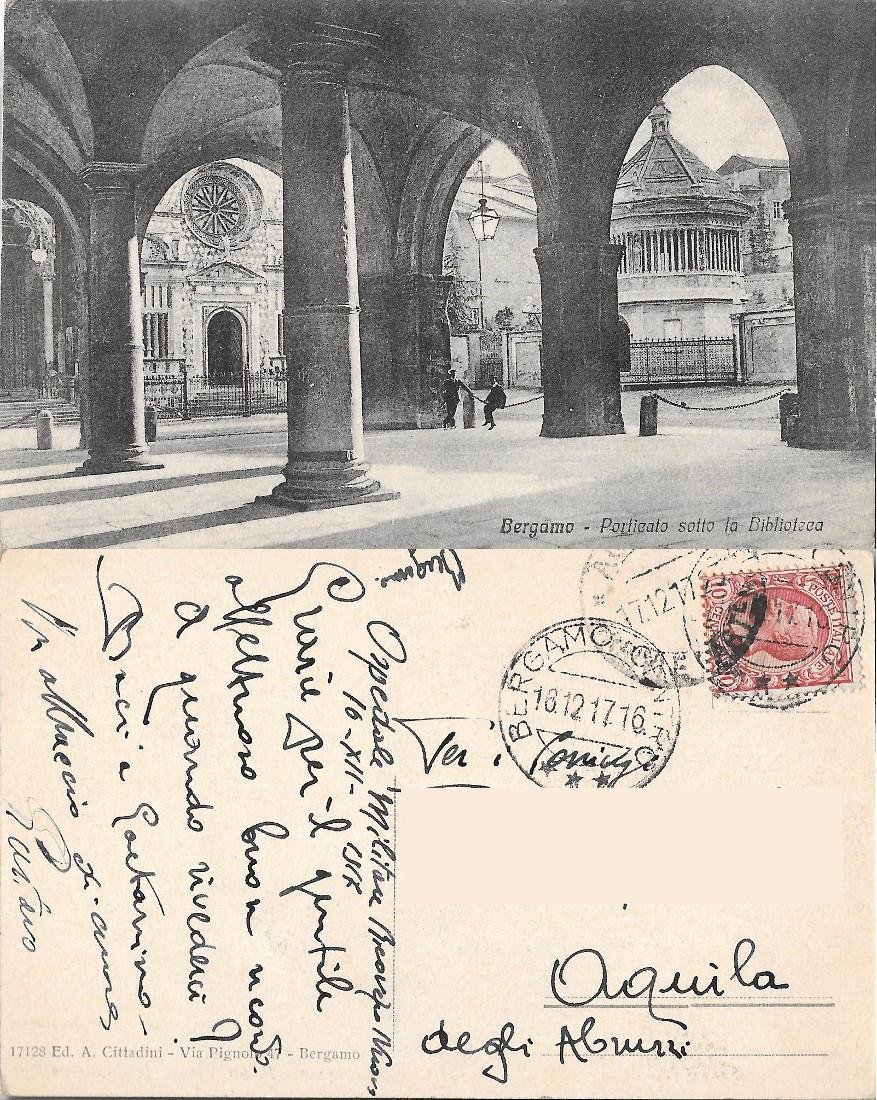 Bergamo - Porticato sotto la Biblioteca
Bergamo.
Ospedale Militare
16-XII-
Grazie per il gentile
affettuoso buon ricordo.
A quando rivederci?
Baci a Gaetanino-
Vi abbraccio
BERGAMO CENTRO
16.12.17 16
17.12.17
POSTE ITALIANE
10
CENT
Aquila
degli Abruzzi
17128 Ed. A. Cittadini - Via Pignolo 47 - Bergamo